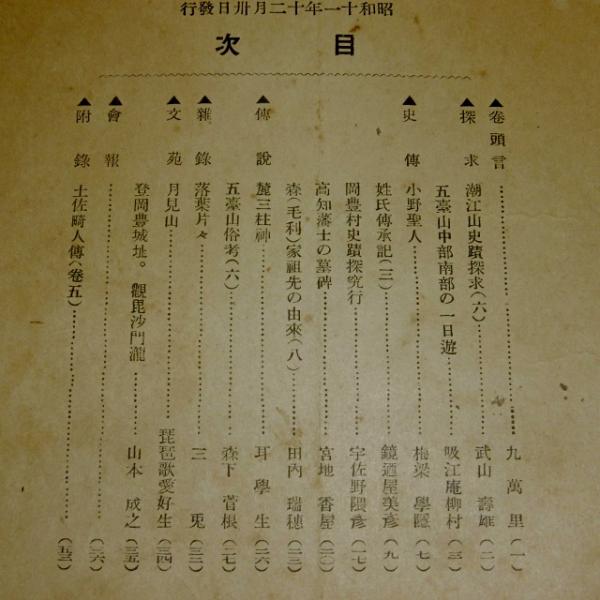 昭和十一年十二月卅日發行
目次
▲卷頭言……九萬里（一）
▲探求 潮江山史蹟探求（六）……武山壽雄（二）
五臺山中部南部の一日遊……吸江庵柳村（三）
▲史傳 小野聖人……梅梁學隱（七）
姓氏傳承記（三）……鏡迺屋美彥（九）
岡豐村史蹟探究行……宇佐野隈彥（一七）
高知藩士の墓碑……宮地香屋（二〇）
森（毛利）家祖先の由來（八）……田內瑞穗（二三）
▲傳說 麓三柱神……耳學生（二六）
五臺山俗考（六）……森下菅根（二七）
▲雜錄 落葉片々……三兎（三三）
▲文苑 月見山……琵琶歌愛好生（三四）
登岡豐城址。觀毘沙門瀧……山本成之（三五）
▲會報……（三六）
▲附錄 土佐畸人傳（卷五）……（五三）